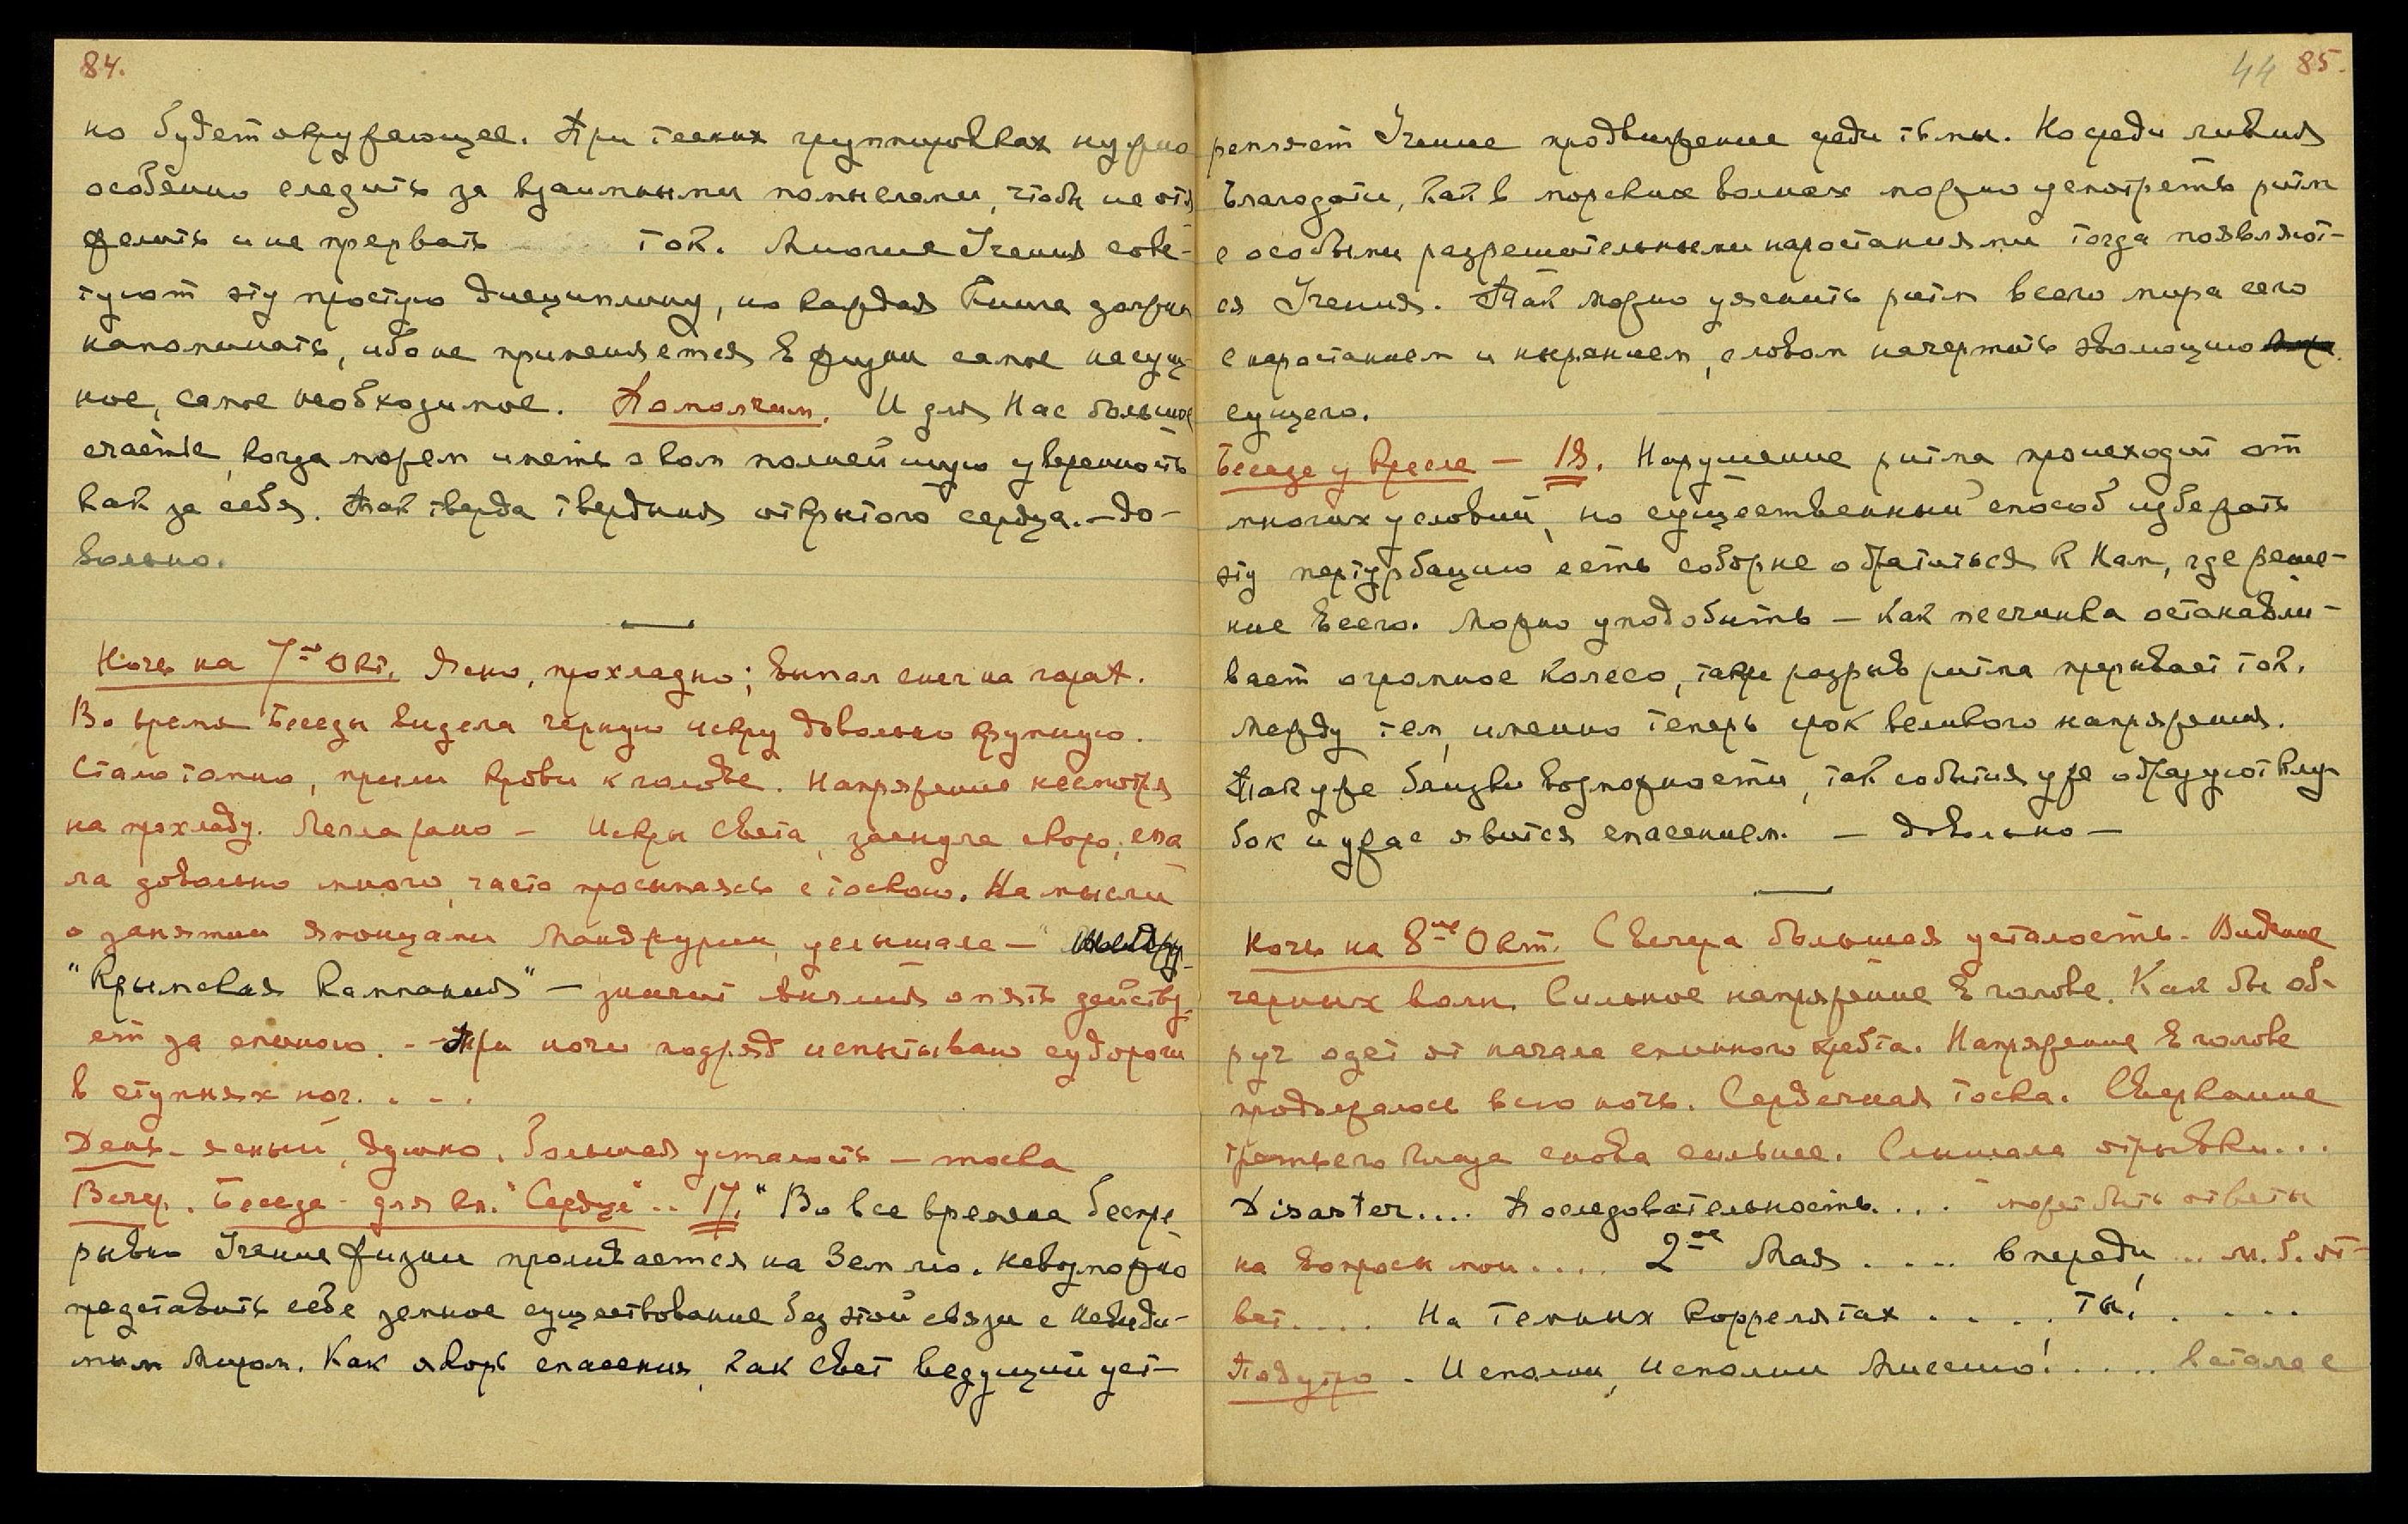 84.
но будет окружающее. При тесных группировках нужно
особенно следить за взаимными помыслами, чтобы не отя
желить и не прервать ток. Многие Учения сове-
туют эту простую дисциплину, но каждая Книга должна
напоминать, ибо не применяется в жизни самое насущ-
ное, самое необходимое. Помолчим. И для Нас большое
счастье, когда можем иметь о ком полнейшую уверенность
как за себя. Так тверда твердыня открытого сердца. — До-
вольно.
Ночь на 7ое Окт. Ясно, прохладно; выпал снег на горах.
Во время Беседы видела черную искру довольно крупную.
Стало томно, прилив крови к голове. Напряжение несмотря
на прохладу. Легла рано — Искры Света, заснула скоро, спа
ла довольно много, часто просыпаясь с тоскою. На мысли
о занятии японцами Манджурии, услышала —
"Крымская Кампания" — значит Англия опять действу-
ет за спиною. - Три ночи подряд испытываю судороги
в ступнях ног. . . .
День - ясный, душно. Большая усталость — тоска
Вечер. Беседа - для кн. "Сердце".. 17. "Во все времена беспре
рывно Учение жизни проливается на Землю. Невозможно
представить себе земное существование без этой связи с Невиди-
мым Миром. Как якорь спасения, как свет ведущий укр-
44 85.
репляет Учение продвижение среди тьмы. Но среди ливня
Благодати, как в морских волнах можно усмотреть ритм
с особыми нарастаниями тогда появляют-
ся Учения. Так можно уяснить ритм всего мира сего
с нарастанием и нырянием, словом начертить эволюцию
сущего.
Беседа у Кресла — 18. Нарушение ритма происходит от
многих условий, но существенный способ избежать
эту пертурбацию есть соборне обратиться к Нам, где реше-
ние всего. Можно уподобить — как песчинка останавли-
вает огромное колесо, также разрыв ритма прерывает ток.
Между тем, именно теперь срок великого напряжения.
Так уже близки возможности, так события уже образуют клу-
бок и ужас явится спасением. — Довольно —
Ночь на 8ое Окт. С Вечера большая усталость. Видение
черных волн. Сильное напряжение в голове. Как бы об-
руч одет от начала спинного хребта. Напряжение в голове
продолжалось всю ночь. Сердечная тоска. Сверкание
третьего глаза снова сильнее. Слышала отрывки...
Disaster.... Последовательность.... может быть ответы
на вопросы мои.... 2ое Мая ..... впереди ... м.б. от-
вет.... На темных коррелятах ..... ты! .....
Под утро - Исполни, Исполни Миссию! .... встала с